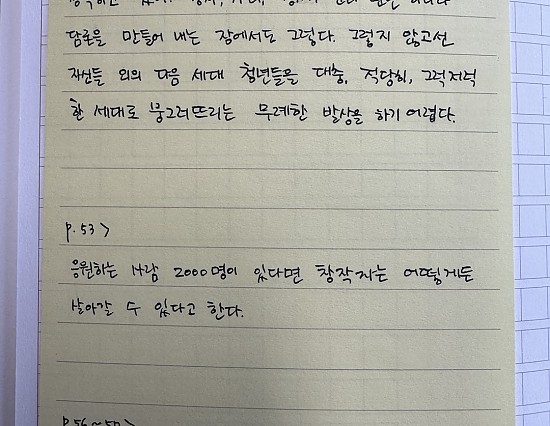 담론을 만들어 내는 장에서도 그렇다. 그렇지 않고선
자신들 외의 다음 세대 청년들을 대충, 적당히, 그럭저럭
한 세대로 뭉그러뜨리는 무례한 발상을 하기 어렵다.
p.53>
응원하는 사람 2000명이 있다면 창작자는 어떻게든
살아갈 수 있다고 한다.
p.56~57>